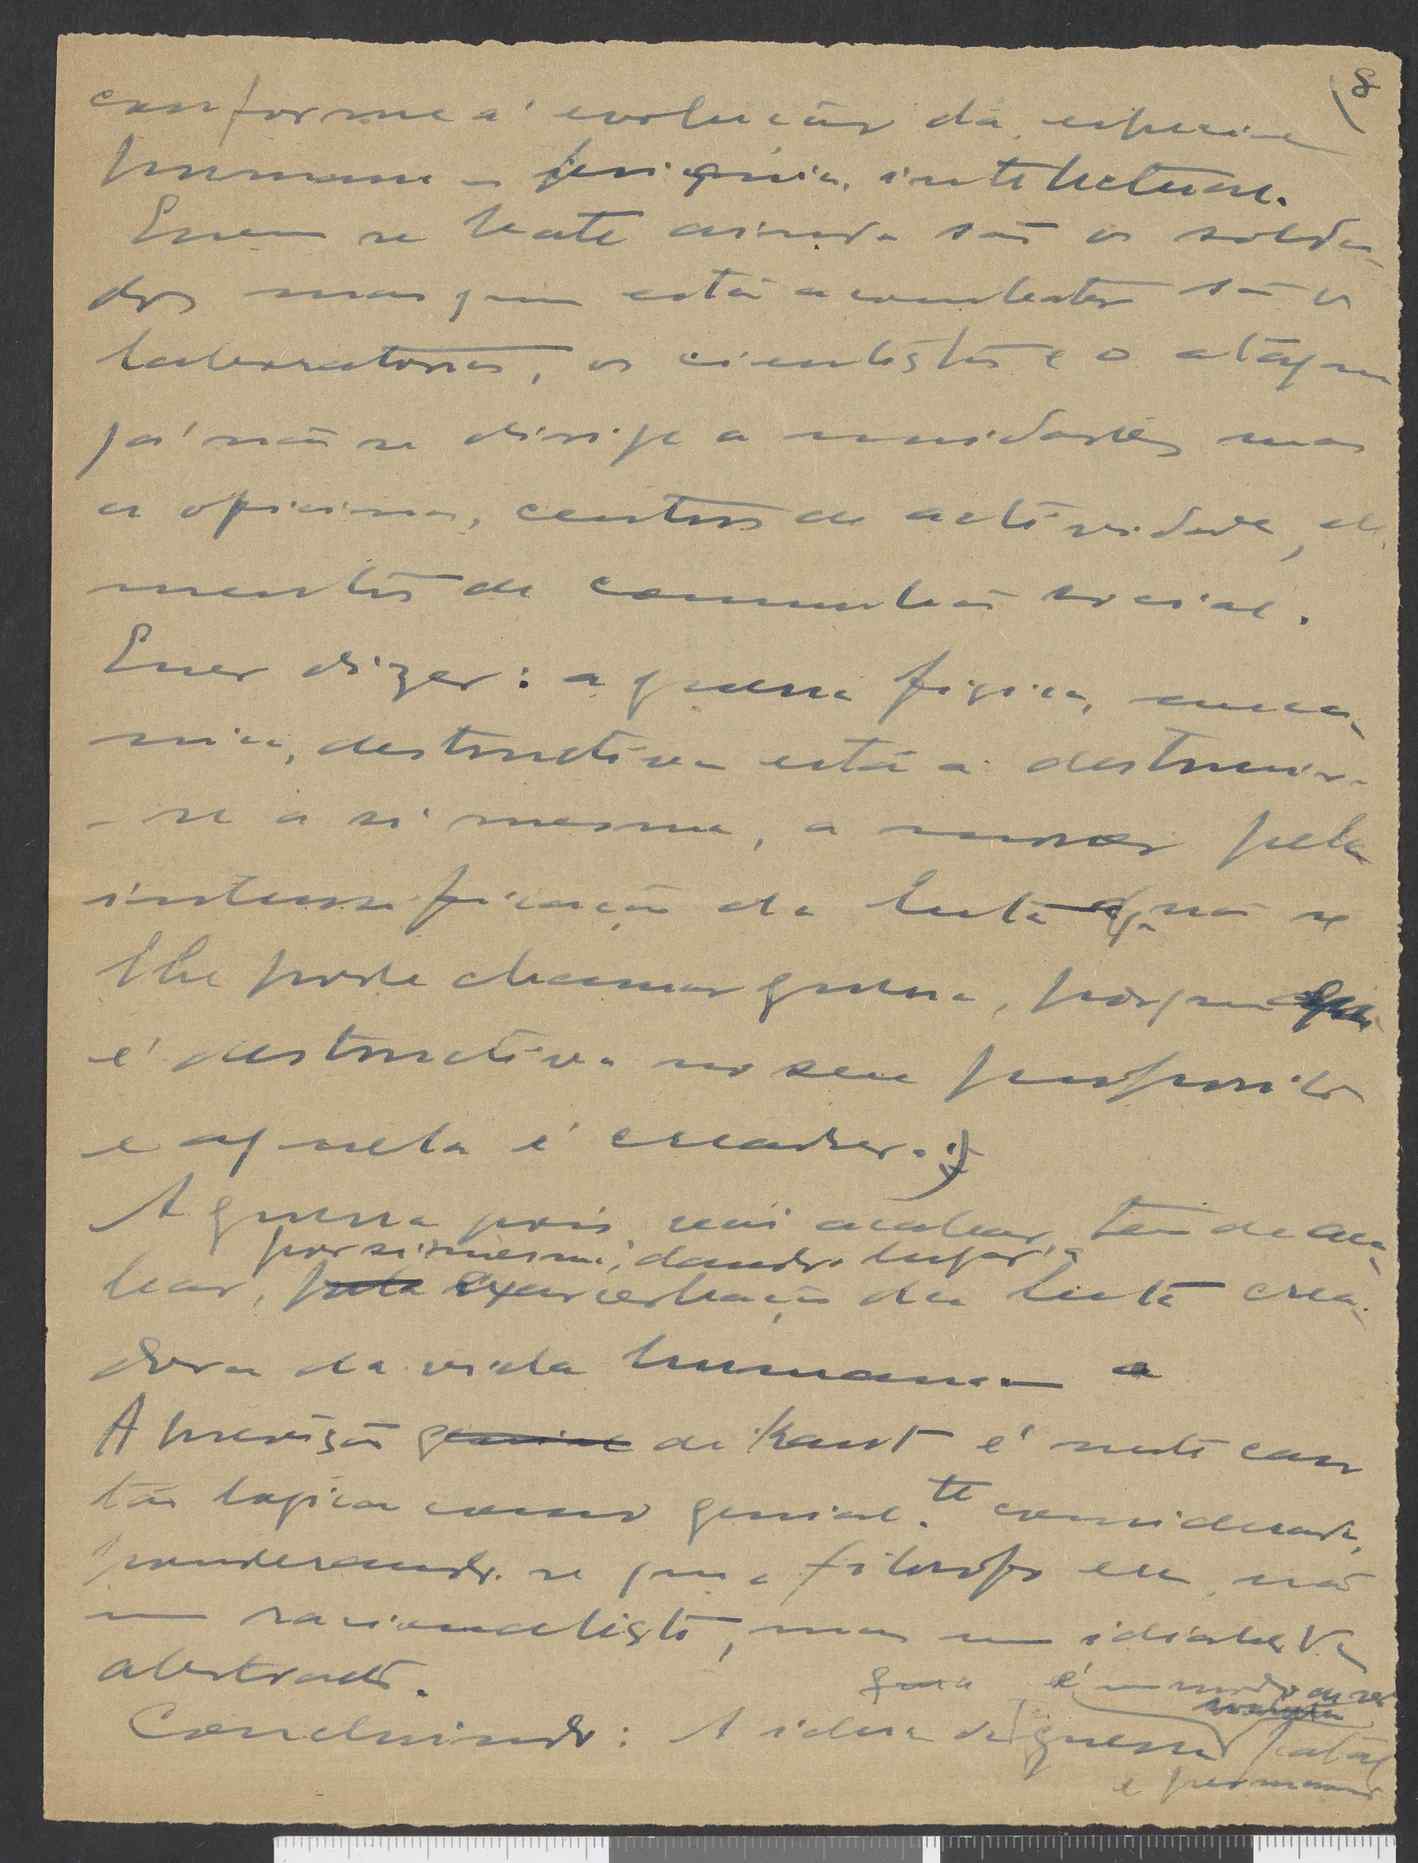 8
conforme a' evolução da especie
humana - psiquica, intelectual.
Quem se bate ainda são os solda-
dos mas quem está a combater são os
laboratorios, os cientistas e o ataque
já não se dirige a unidades mas
a oficinas, centros de actividade, ele-
mentos de comunhão social.
Quer dizer: a guerra fisica, meca-
nica, destructiva está a destruir-
-se a si mesma, a morrer pela
intensificação da luta q. não se
lhe pode chamar guerra, porque
é destructiva no seu proposito
e aquela é creadora.
A guerra pois vai acabar, tem de aca-
por si mesma, dando lugar à
bar, pela exacerbação da luta crea-
dora da vida humana
A previsão genial de Kant é neste caso
tão logica como genial.te considerada,
ponderando-se que o filosofo era, não
um racionalista, mas um idealista
abstracto.
guerra é um modo de ser
Concluindo: A ideia da guerra fatal
e permanente